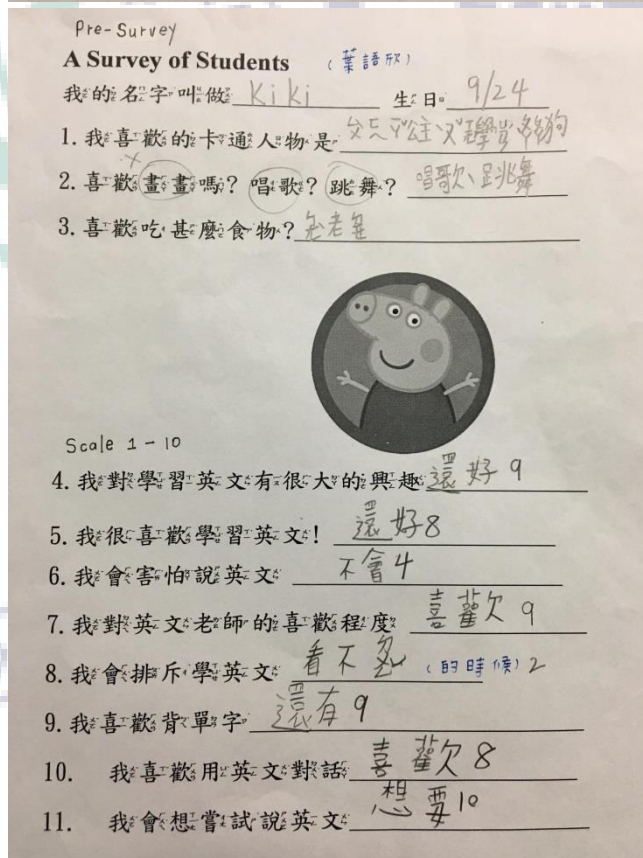 Pre-Survey
A Survey of Students (葉語欣)
我的名字叫做 Kiki 生日 9/24
1. 我喜歡的卡通人物是
2. 喜歡畫畫嗎? 唱歌? 跳舞? 唱歌、跳舞
3. 喜歡吃甚麼食物?
Scale 1-10
4. 我對學習英文有很大的興趣 還好 9
5. 我很喜歡學習英文! 還好 8
6. 我會害怕說英文 不會 4
7. 我對英文老師的喜歡程度 喜歡 9
8. 我會排斥學英文 看不 (的時候) 2
9. 我喜歡背單字 還有 9
10. 我喜歡用英文對話 喜歡 8
11. 我會想嘗試說英文 想要 10